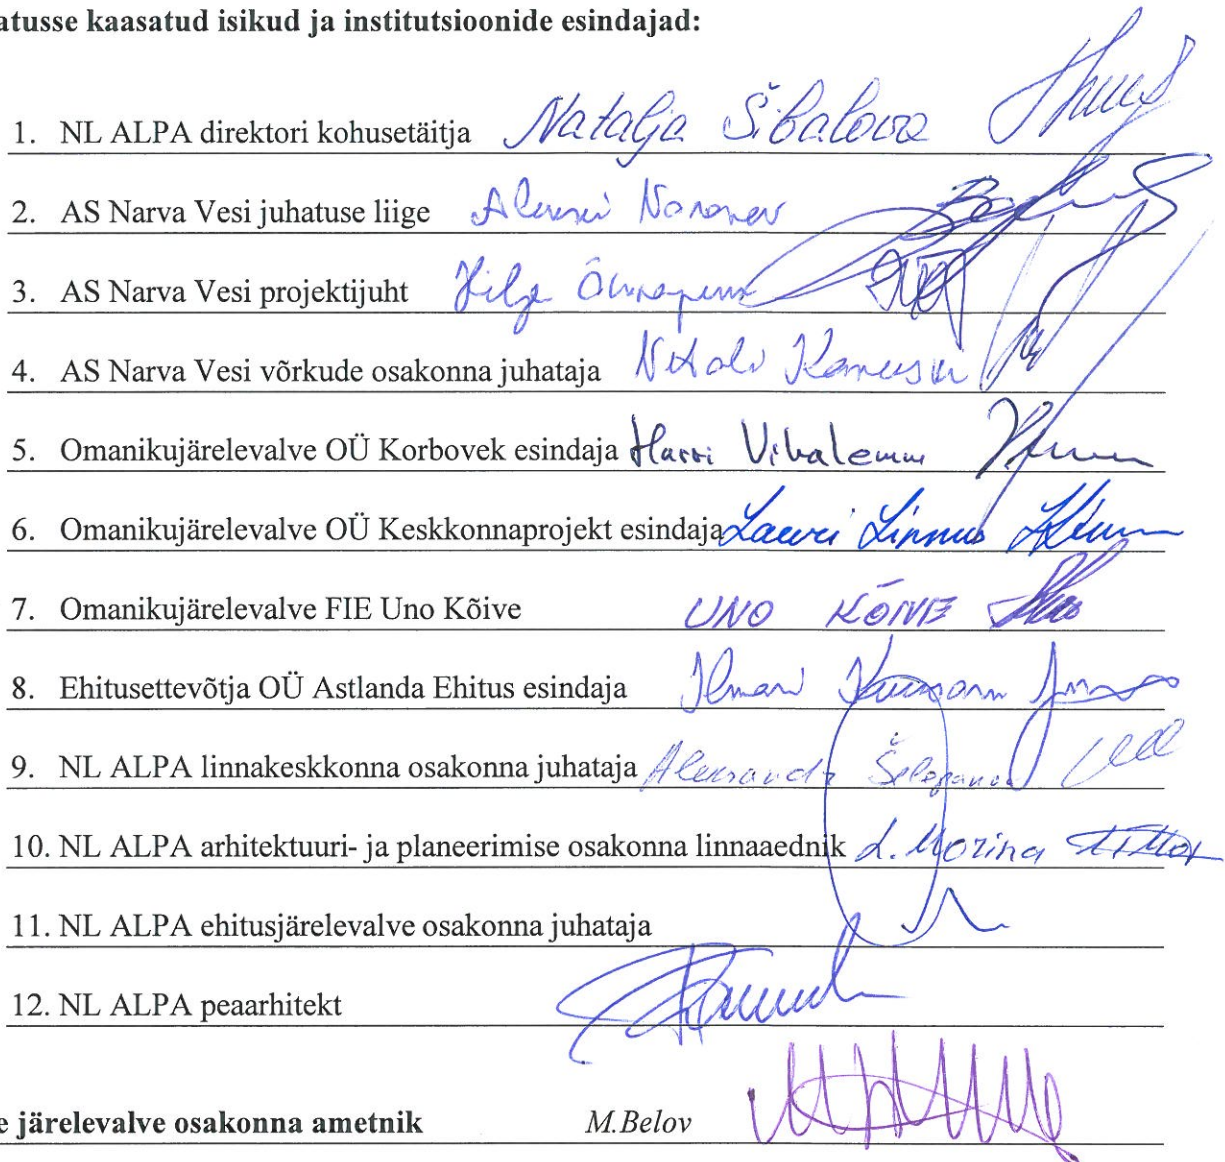 atusse kaasatud isikud ja institutsioonide esindajad:
1. NL ALPA direktori kohusetäitja Natalja Šibalova
2. AS Narva Vesi juhatuse liige
3. AS Narva Vesi projektijuht
4. AS Narva Vesi võrkude osakonna juhataja
5. Omanikujärelevalve OÜ Korbovek esindaja Harri Vihalemm
6. Omanikujärelevalve OÜ Keskkonnaprojekt esindaja Lauri Linnus
7. Omanikujärelevalve FIE Uno Kõive UNO KÕIVE
8. Ehitusettevõtja OÜ Astlanda Ehitus esindaja Ilmari
9. NL ALPA linnakeskkonna osakonna juhataja
10. NL ALPA arhitektuuri- ja planeerimise osakonna linnaaednik
11. NL ALPA ehitusjärelevalve osakonna juhataja
12. NL ALPA peaarhitekt
e järelevalve osakonna ametnik M.Belov